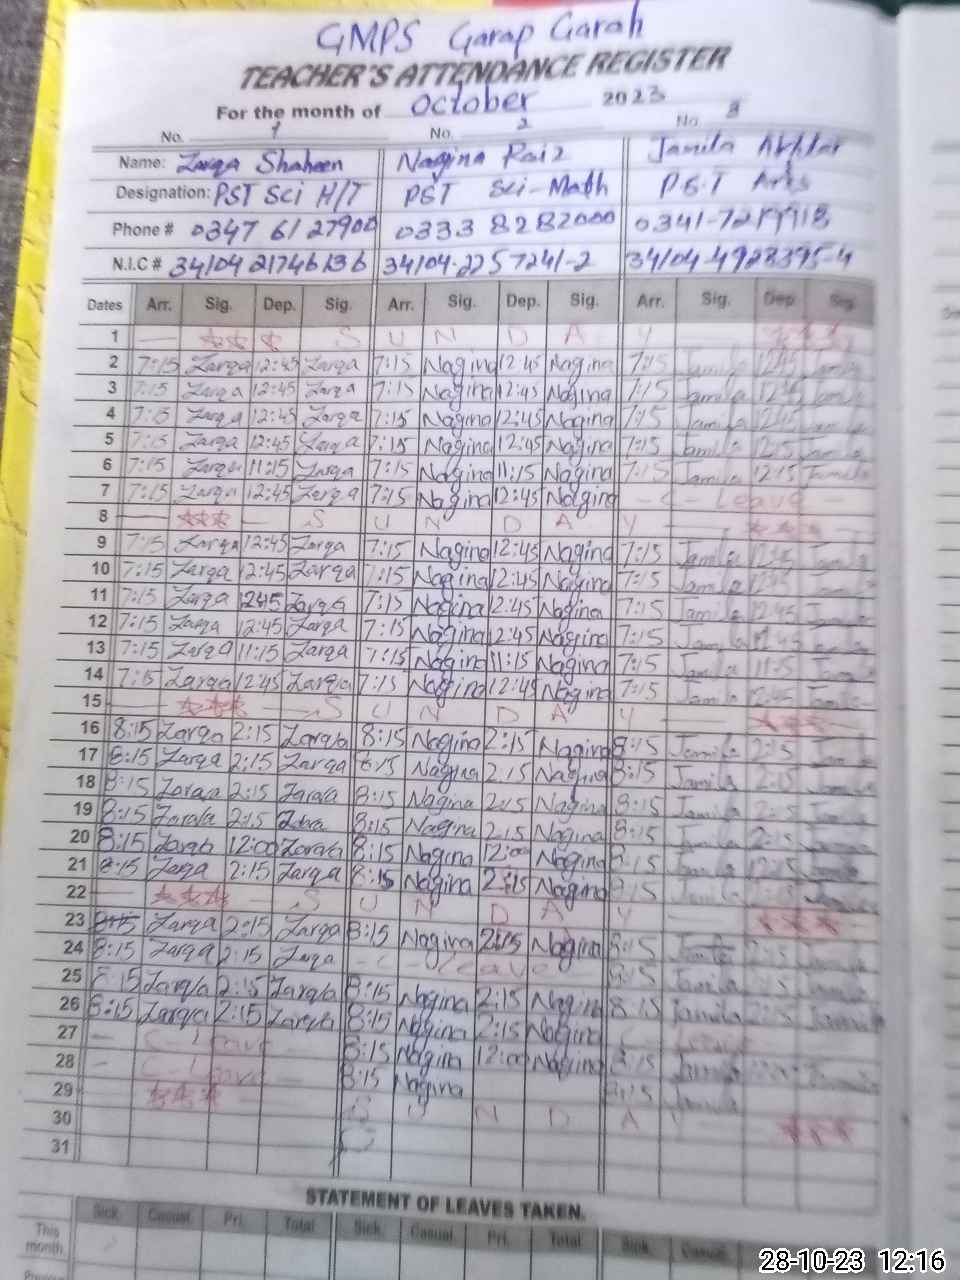 GMPS Garap Garah
TEACHER'S ATTENDANCE REGISTER
For the month of October 2023
No. 1 No. 2 No. 3
Name: Zarqa Shaheen Nagina Raiz Jamila Akhtar
Designation: PST Sci H/T PST Sci-Math P.S.T Arts
Phone # 0347 6127900 0333 8282000
N.I.C # 34104 21746136 34104-2257241-2 34104-4928395-4
Dates Arr. Sig. Dep. Sig. Arr. Sig. Dep. Sig. Arr. Sig. Dep. Sig.
1 S U N D A Y
2 7:15 Zarqa 12:45 Zarqa 7:15 Nagina 12:45 Nagina 7:15 Jamila 12:45 Jamila
3 7:15 Zarqa 12:45 Zarqa 7:15 Nagina 12:45 Nagina 7:15 Jamila 12:45 Jamila
4 7:15 Zarqa 12:45 Zarqa 7:15 Nagina 12:45 Nagina 7:15 Jamila 12:45 Jamila
5 7:15 Zarqa 12:45 Zarqa 7:15 Nagina 12:45 Nagina 7:15 Jamila Jamila
6 7:15 Zarqa 11:15 Zarqa 7:15 Nagina 11:15 Nagina 7:15 Jamila 12:15 Jamila
7 7:15 Zarqa 12:45 Zarqa 7:15 Nagina 12:45 Nagina - C - Leave
8 S U N D A Y
9 7:15 Zarqa 12:45 Zarqa 7:15 Nagina 12:45 Nagina 7:15 Jamila 12:45 Jamila
10 7:15 Zarqa 12:45 Zarqa 7:15 Nagina 12:45 Nagina 7:15 Jamila Jamila
11 7:15 Zarqa 12:45 Zarqa 7:15 Nagina 12:45 Nagina 7:15 Jamila 12:45 Jamila
12 7:15 Zarqa 12:45 Zarqa 7:15 Nagina 12:45 Nagina 7:15 Jamila 12:45
13 7:15 Zarqa 11:15 Zarqa 7:15 Nagina 11:15 Nagina 7:15 Jamila 11:15 Jamila
14 7:15 Zarqa 12:45 Zarqa 7:15 Nagina 12:45 Nagina 7:15 Jamila 12:45 Jamila
15 S U N D A Y
16 8:15 Zarqa 2:15 Zarqa 8:15 Nagina 2:15 Nagina 8:15 Jamila 2:15 Jamila
17 8:15 Zarqa 2:15 Zarqa 8:15 Nagina 2:15 Nagina 8:15 Jamila 2:15 Jamila
18 8:15 Zarqa 2:15 Zarqa 8:15 Nagina 2:15 Nagina 8:15 Jamila 2:15 Jamila
19 8:15 Zarqa 2:15 Zarqa 8:15 Nagina 2:15 Nagina 8:15 Jamila 2:15
20 8:15 Zarqa 12:00 Zarqa 8:15 Nagina 12:00 Nagina 8:15 Jamila 12:15
21 8:15 Zarqa 2:15 Zarqa 8:15 Nagina 2:15 Nagina 8:15 Jamila 2:15
22 S U N D A Y
23 8:15 Zarqa 2:15 Zarqa 8:15 Nagina 2:15 Nagina 8:15 Jamila 2:15 Jamila
24 8:15 Zarqa 2:15 Zarqa - C - Leave 8:15 Jamila Jamila
25 8:15 Zarqa 2:15 Zarqa 8:15 Nagina 2:15 Nagina 8:15 Jamila 2:15 Jamila
26 8:15 Zarqa 2:15 Zarqa 8:15 Nagina 2:15 Nagina C - Leave
27 - C - Leave 8:15 Nagina 12:00 Nagina 8:15 Jamila
28 - C - Leave - 8:15 Nagina 8:15 Jamila
29 S U N D A Y
30
31
STATEMENT OF LEAVES TAKEN.
Sick Casual Pri. Total Sick. Casual. Pri. Total Sick. Casual.
This month
28-10-23 12:16